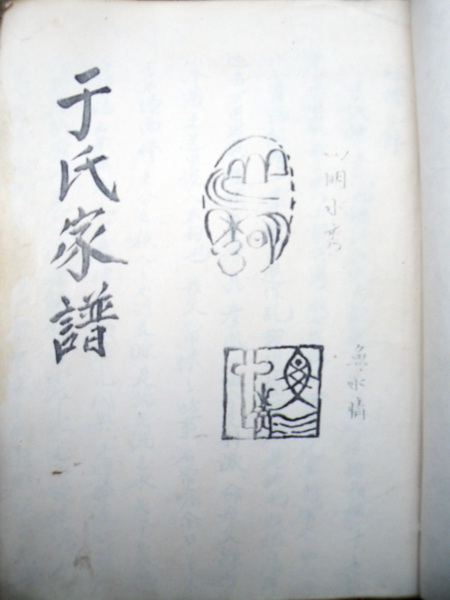 于氏家譜
山明水秀
魚水情